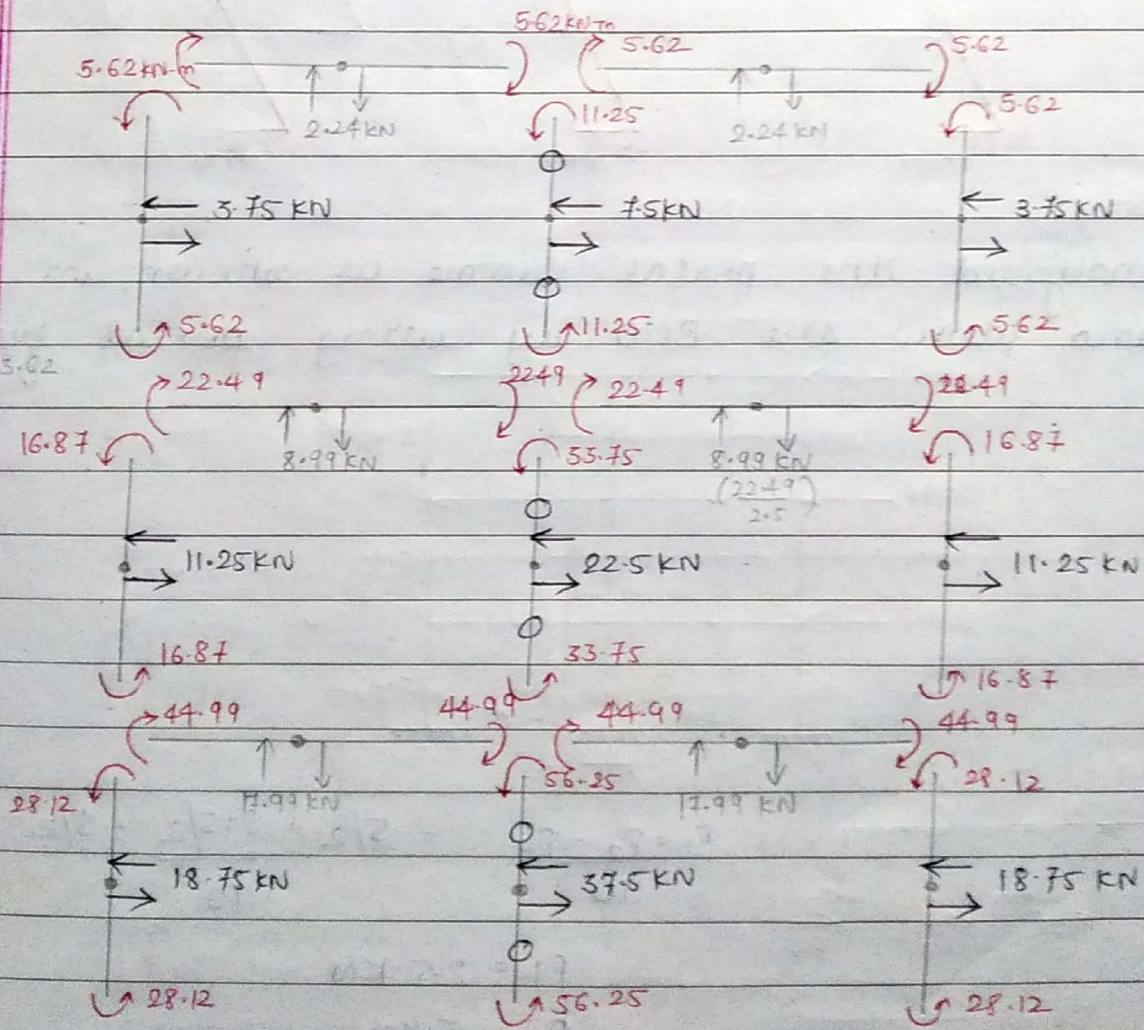 5.62 kN-m
5.62 kN-m 5.62 5.62
2.24 kN 11.25 2.24 kN 5.62
3.75 KN 7.5 KN 3.75 KN
5.62 11.25 5.62
3.62
22.49 2249 22.49 22.49
16.87 8.99 KN 33.75 8.99 KN 16.87
(22.49
2.5)
11.25 KN 22.5 KN 11.25 KN
16.87 33.75 16.87
44.99 44.99 44.99 44.99
28.12 17.99 KN 56.25 17.99 KN 28.12
18.75 KN 37.5 KN 18.75 KN
28.12 56.25 28.12